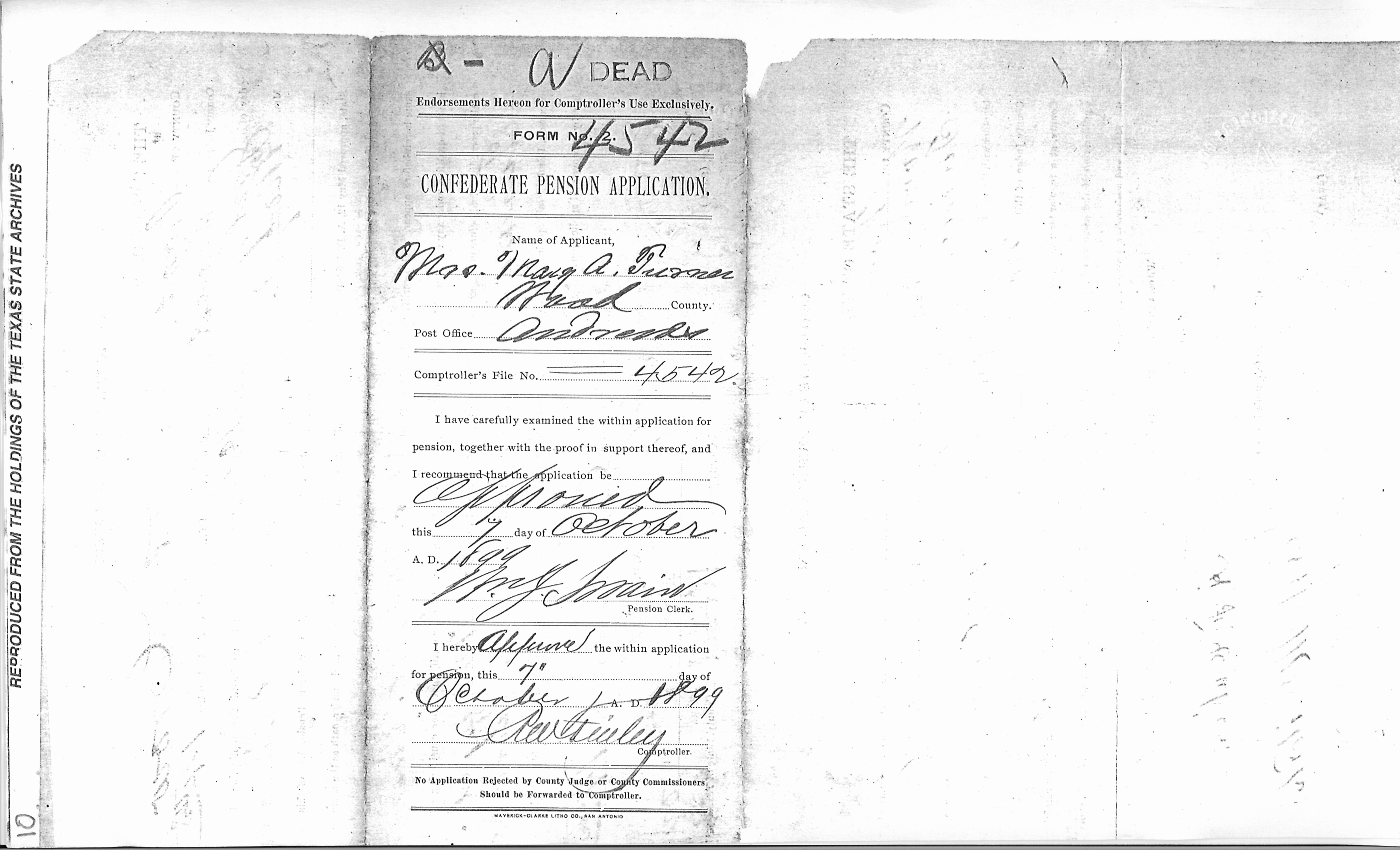 REPRODUCED FROM THE HOLDINGS OF THE TEXAS STATE ARCHIVES
10
B - A DEAD
Endorsements Hereon for Comptroller's Use Exclusively.
FORM No. 2. 4542
CONFEDERATE PENSION APPLICATION.
Name of Applicant,
Mrs. Mary A. Turner
Wood County.
Post Office Andrews
Comptroller's File No. 4542.
I have carefully examined the within application for
pension, together with the proof in support thereof, and
I recommend that the application be
Approved
this 7 day of October
A. D. 1899
Wm. J. Swain
Pension Clerk.
I hereby Approve the within application
for pension, this 7" day of
October A. D. 1899
R W Finley
Comptroller.
No Application Rejected by County Judge or County Commissioners
Should be Forwarded to Comptroller.
MAVERICK-CLARKE LITHO CO., SAN ANTONIO